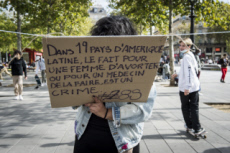 DANS 19 PAYS D'AMERIQUE
LATINE, LE FAIT POUR
UNE FEMME D'AVORTER
OU POUR UN MEDECIN
DE L'AIDER EST UN
CRIME